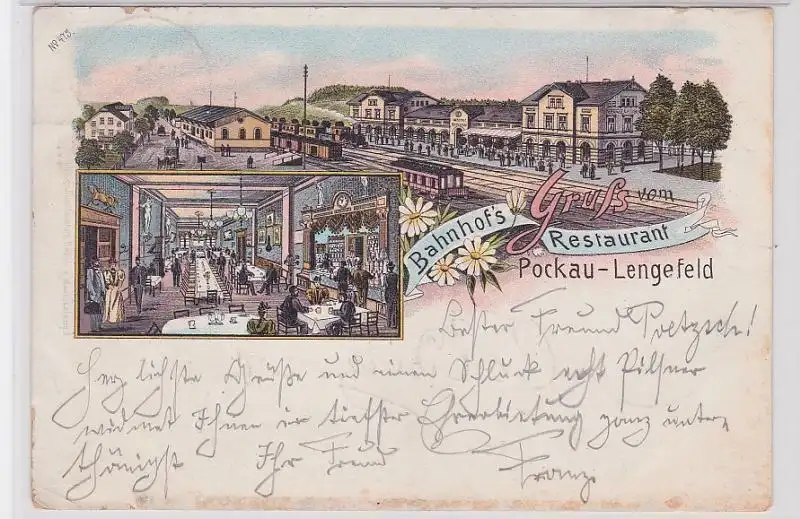 No 475.
Gruß vom
Bahnhof's
Restaurant
Pockau-Lengefeld
Bester Freund Poetzsch!
Herzlichste Grüße und einen Schluck echt Pilsner
widmet Ihnen in tiefster Ehrerbietung ganz unter,
thänigst Ihr Freund
Franz.